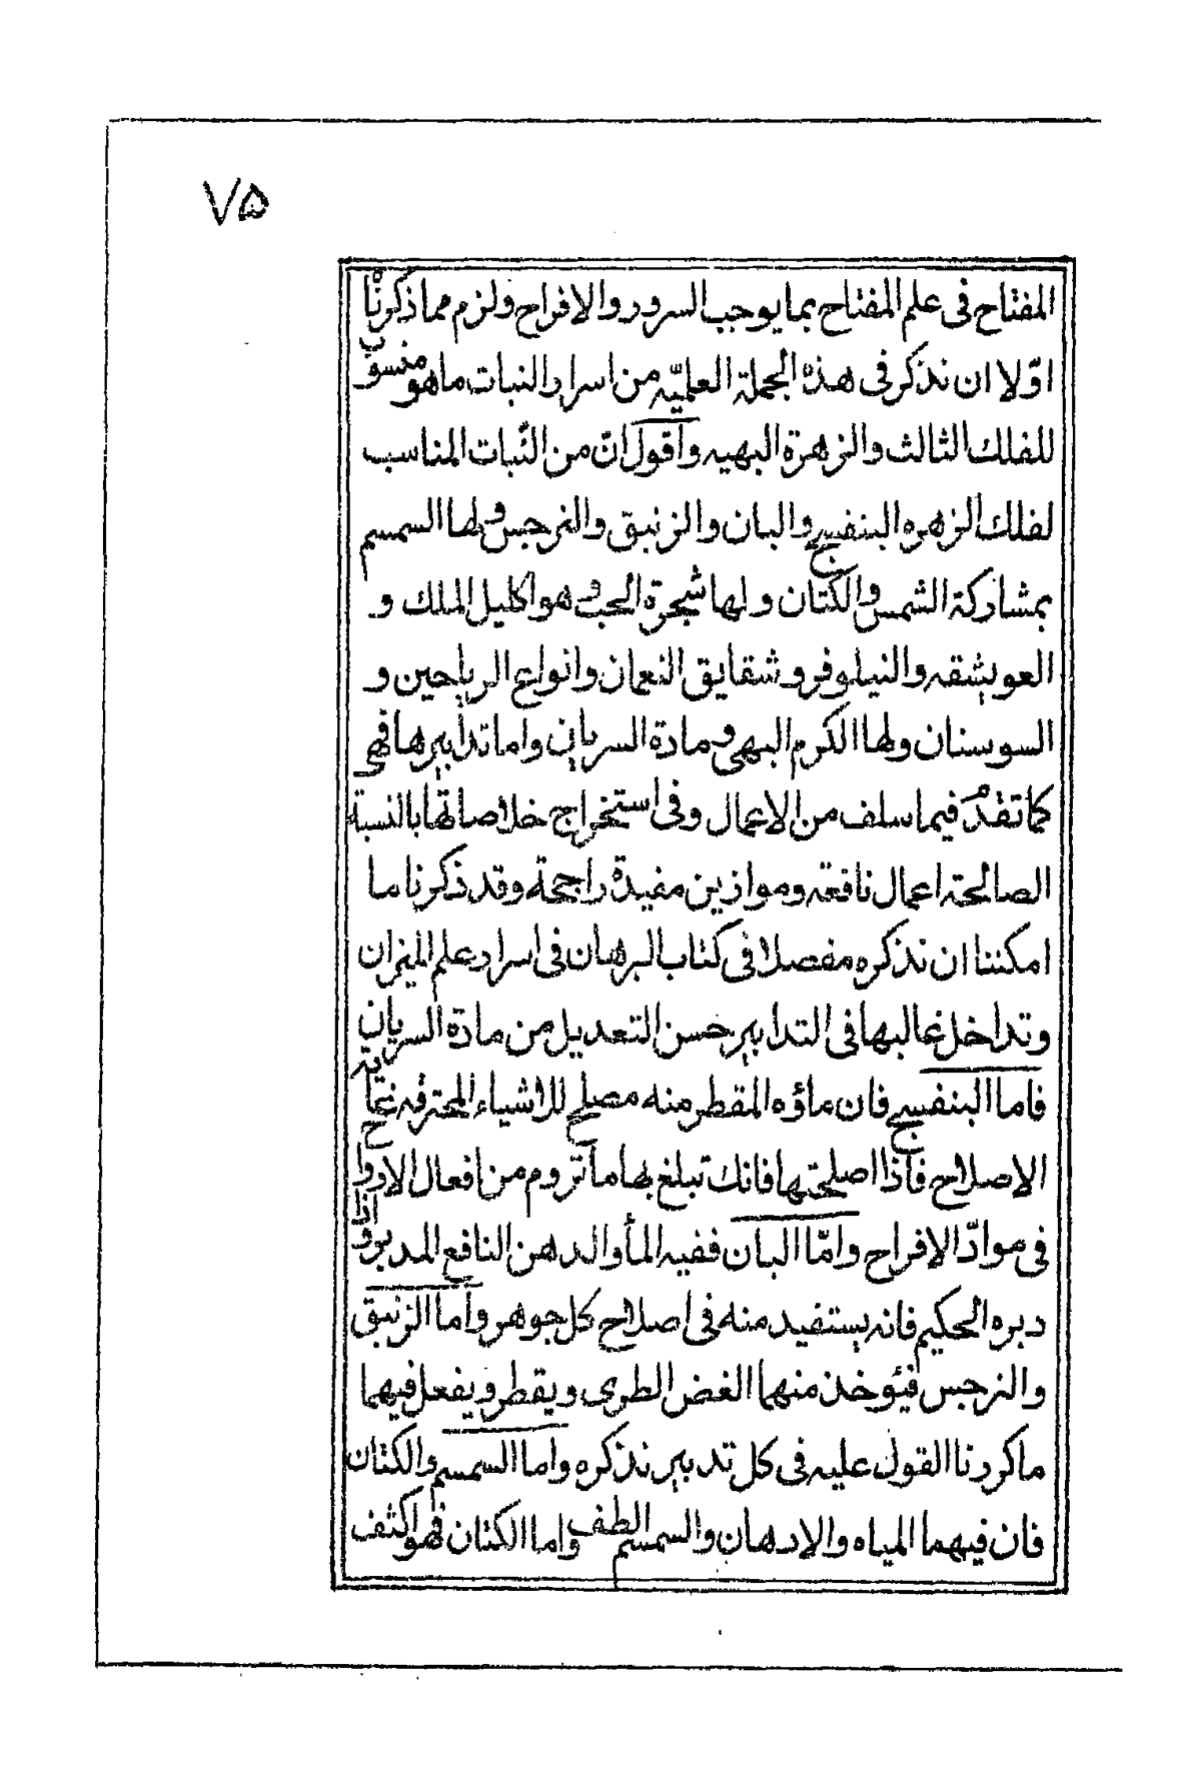 ٧۵
المفتاح فى علم المفتاح بما يوجب السرور والافراح ولزم مما ذكرنا
اوّلا ان نذكر فى هذه الجملة العلميّه من اسرار النبات ما هو منسوب
للفلك الثالث والزهرة البهيه واقول انّ من النّبات المناسب
لفلك الزهره البنفسج والبان والزنبق والنرجس ولها السمسم
بمشاركة الشمس والكتان ولها شجرة الحب وهو اكليل الملك و
والنيلوفر وشقايق النعمان وانواع الرياحين و
السوسنان ولها الكرم البهى ومادة السريان واما تدابيرها فهى
كما تقدّم فيما سلف من الاعمال وفى استخراج خلاصاتها بالنسبة
الصالحة اعمال نافعه وموازين مفيدة راجحة وقد ذكرنا ما
امكننا ان نذكره مفصلا فى كتاب البرهان فى اسرار علم الميزان
وتداخل غالبها فى التدابير حسن التعديل من مادّة السريان
فاما البنفسج فان ماؤه المقطر منه مصلح للاشياء المحترقه
الاصلاح فاذا اصلحتها فانك تبلغ بها ما تروم من افعال الارواح
فى موادّ الافراح وامّا البان ففيه المأ والدهن النافع المدبر واذا
دبره الحكيم فانه يستفيد منه فى اصلاح كل جوهر واما الزنبق
والنرجس فيؤخذ منهما الغض الطرى ويقطر ويفعل فيهما
ما كررنا القول عليه فى كل تدبير نذكره واما السمسم والكتان
فان فيهما المياه والادهان والسمسم الطف واما الكتان فهو اكثف